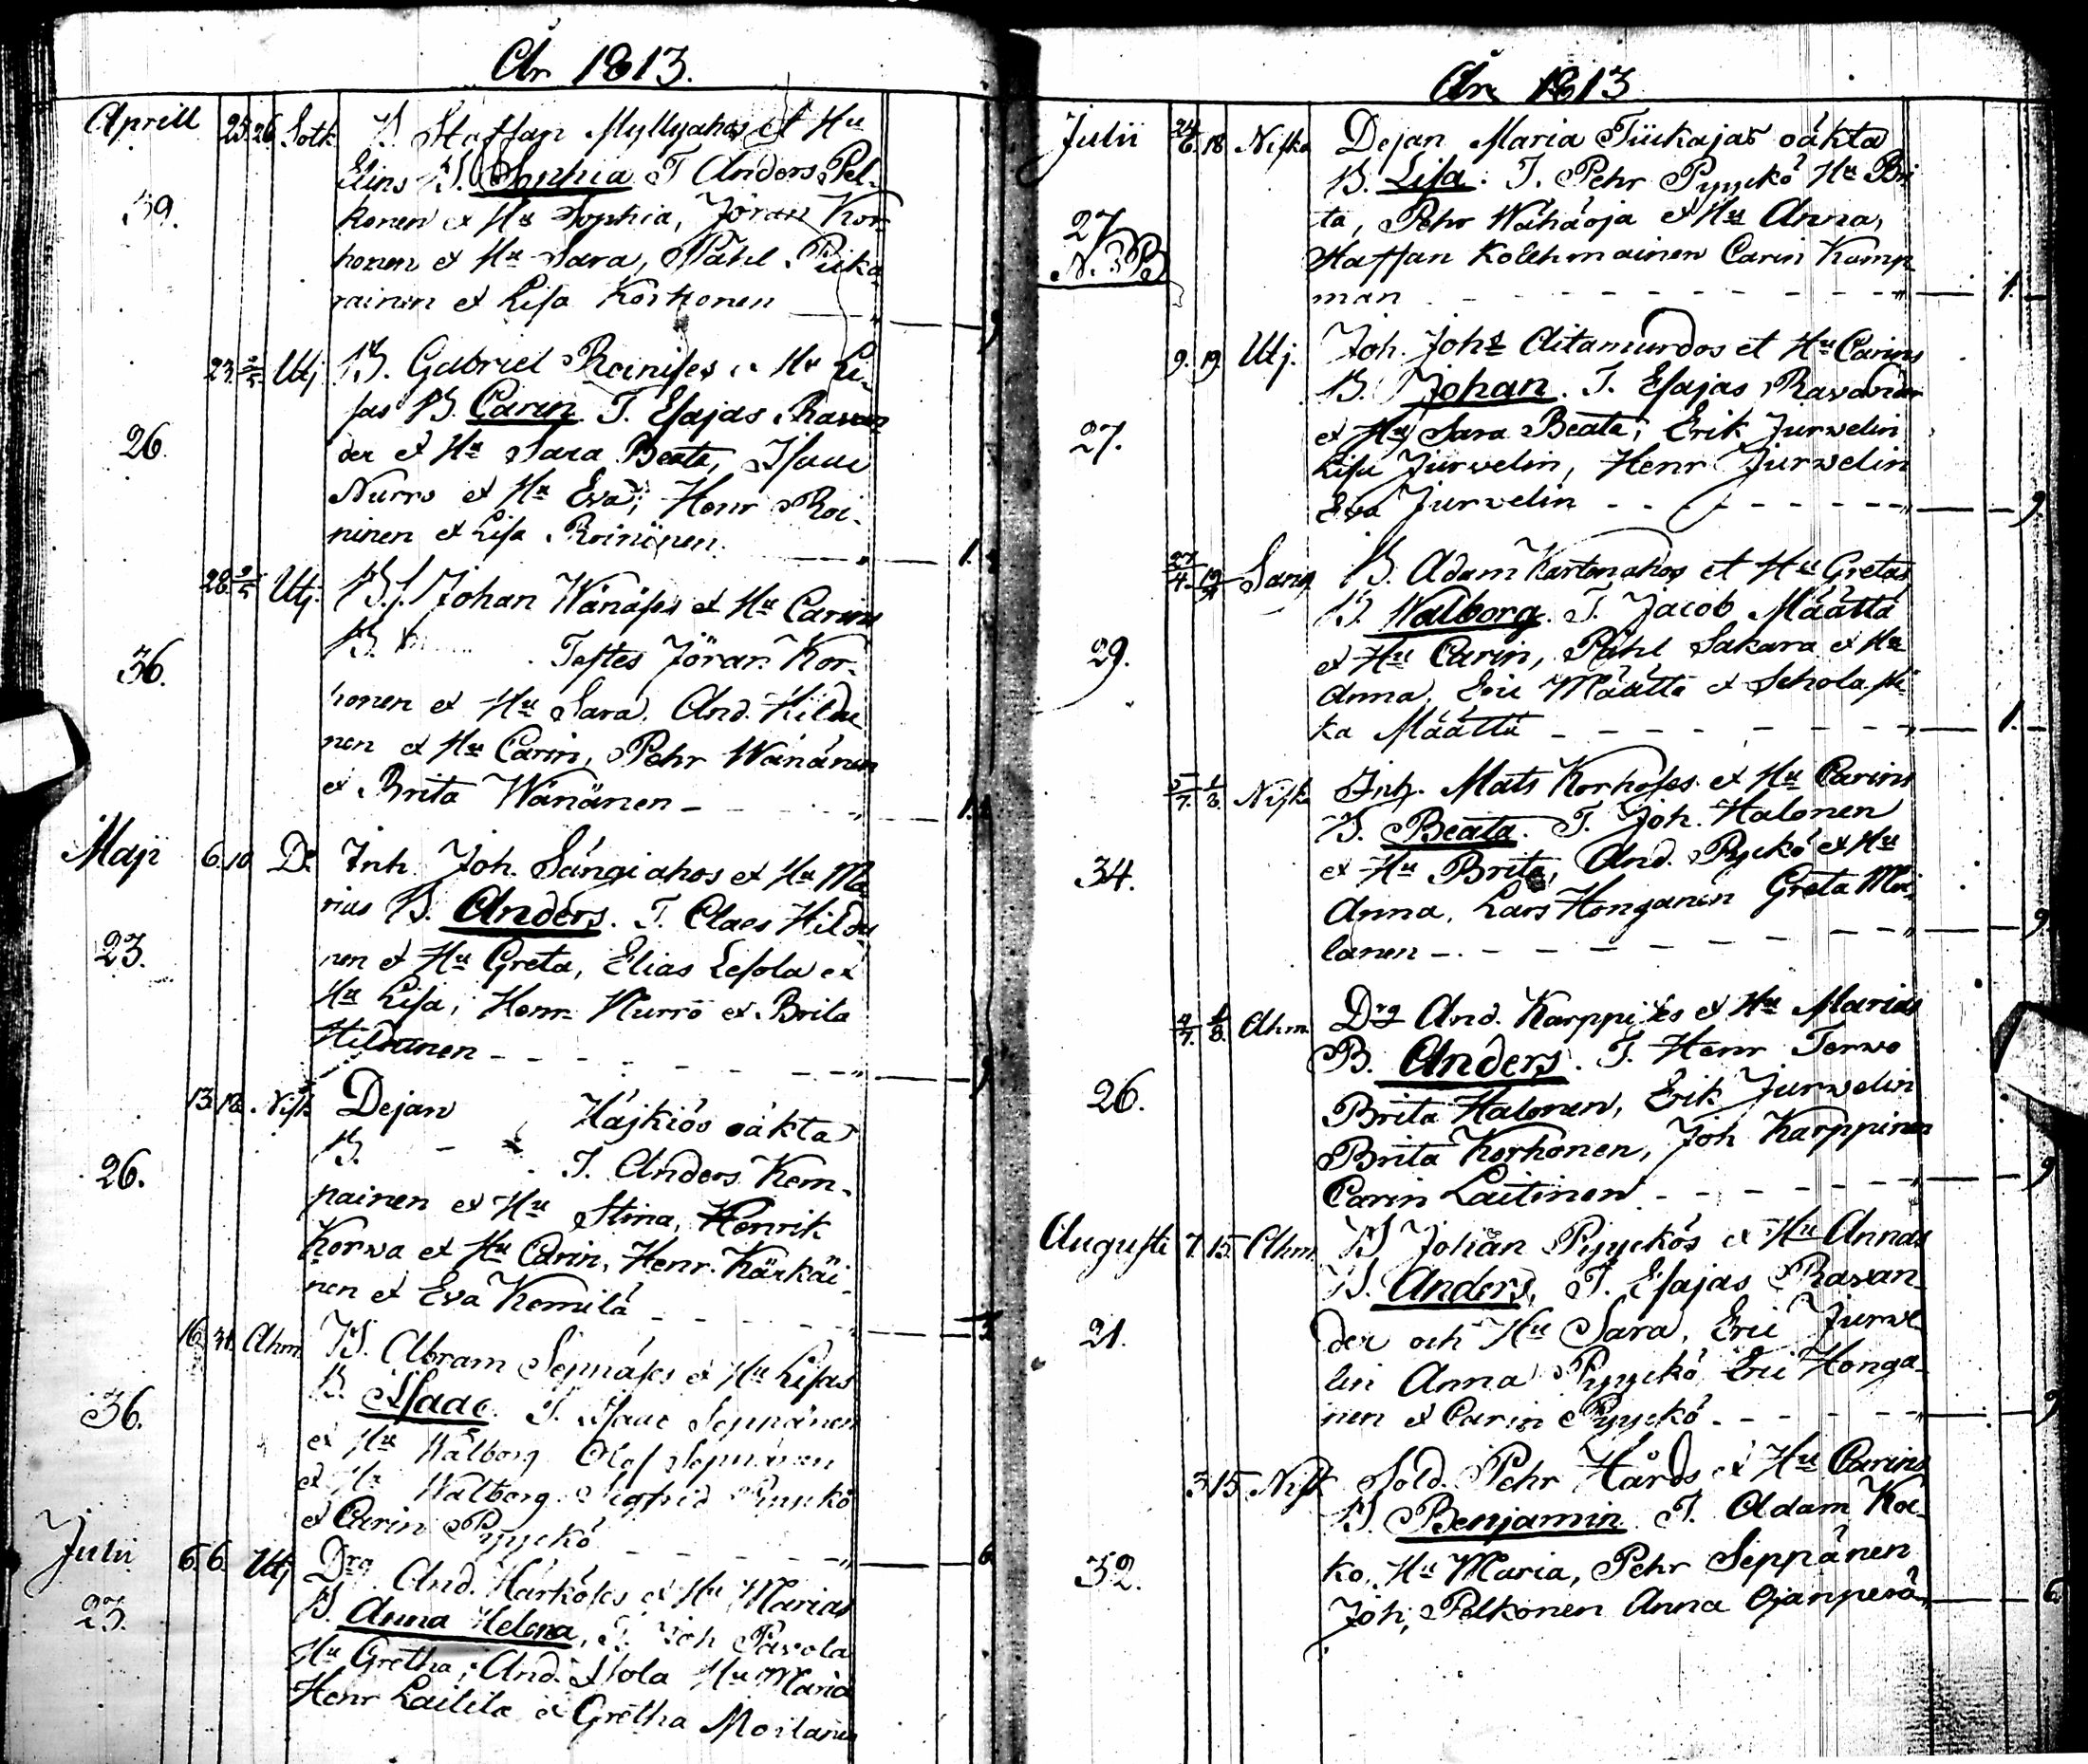 År 1813.
Aprill 25. 26 Sotk. B. Staffan Myllyahos et Hu
Elins B. Sophia T. Anders Pel-
39. konen et Hu Sophia, Jöran Kor-
honen et Hu Sara, Påhl Pika-
rainen et Lisa Korhonen
23. 2/5. Utj B. Gabriel Roinises et Hu Li-
sas B. Carin T. Esajas Ravan-
26. der et Hu Sara Beata, Isaac
Nurro et Hu Eva, Henr Roi-
ninen et Lisa Roininen. 1.
28. 2/5 Utj. B.S. Johan Wänäses et Hu Carins
B. Testes Jöran Kor-
36. honen et Hu Sara, And. Hildu-
nen et Hu Carin, Pehr Wänänen
et Brita Wänänen - 1.
Maji 6. 10. Do Inh. Joh. Sängiahos et Hu Ma-
rias B. Anders. T. Claes Hildu-
23. nen et Hu Greta, Elias Lesola et
Hu Lisa, Henr. Nurro et Brita
Hildunen - 9
13. 18. Nisk Dejan Häjkiös oäkta
B. T. Anders Kem-
26. painen et Hu Stina, Henrik
Korwa et Hu Carin, Henr. Kärkäi-
nen et Eva Kemilä
16. 31. Ahm. B. Abram Sepnäses et Hu Lisas
B. Isaac. T. Isaac Seppänen
36. et Hu Walborg Olof Sepnänen
et Hu Walborg Sigfrid Pyyckö
et Carin Pyyckö 6
Julii 5. 6. Utj Drg And. Härköses et Hu Marias
23. B. Anna Helena, T. Joh Pävola
Hu Gretha, And. Hu Maria
Henr Laitila et Gretha Moilanen
År 1813
Julii 24/6. 18 Niska Dejan Maria Tiikajas oäkta
B. Lisa. T. Pehr Pyyckö Hu Bri-
27 ta, Pehr Wähäoja et Hu Anna,
N. 3B Staffan Kolehmainen Carin Kemp-
man 1.
9. 19. Utj. Joh. Johs Aitamurdos et Hu Carins
B. Johan. T. Esajas Ravander
27. et Hu Sara Beata, Erik Jurvelin
Lisa Jurvelin, Henr Jurvelin
Eva Jurvelin 9
27/4. Sang B. Adam Kartonahos et Hu Gretas
B. Walborg. T. Jacob Määttä
29. et Hu Carin, Påhl Sakara et Hu
Anna, Eric Määttä et Schola sti-
ka Määttä 1.
5/7. 1/8. Niska Inh. Mats Korhoses et Hu Carins
B. Beata. T. Joh. Halonen
34. et Hu Brita, And. Pyckö et Hu
Anna, Lars Honganen Greta Moi-
lanen 9
4/7. 1/8. Ahm. Drg And. Karppises et Hu Marias
B. Anders. T. Henr Terwo
26. Brita Halonen, Erik Jurvelin
Brita Korhonen, Joh Karppinen
Carin Laitinen 9
Augusti 7. 15. Ahm. B Johan Pyyckös et Hu Annas
B. Anders, T. Esajas Ravan-
21. der och Hu Sara, Eric Jurve-
lin Anna Pyyckö Eric Honga-
nen et Carin Pyyckö 9
3 15 Nisk Sold. Pehr Hårds et Hu Carins
B. Benjamin T. Adam Koi-
32. ko, Hu Maria, Pehr Seppänen
Joh, Pelkonen Anna Ojanperä 6